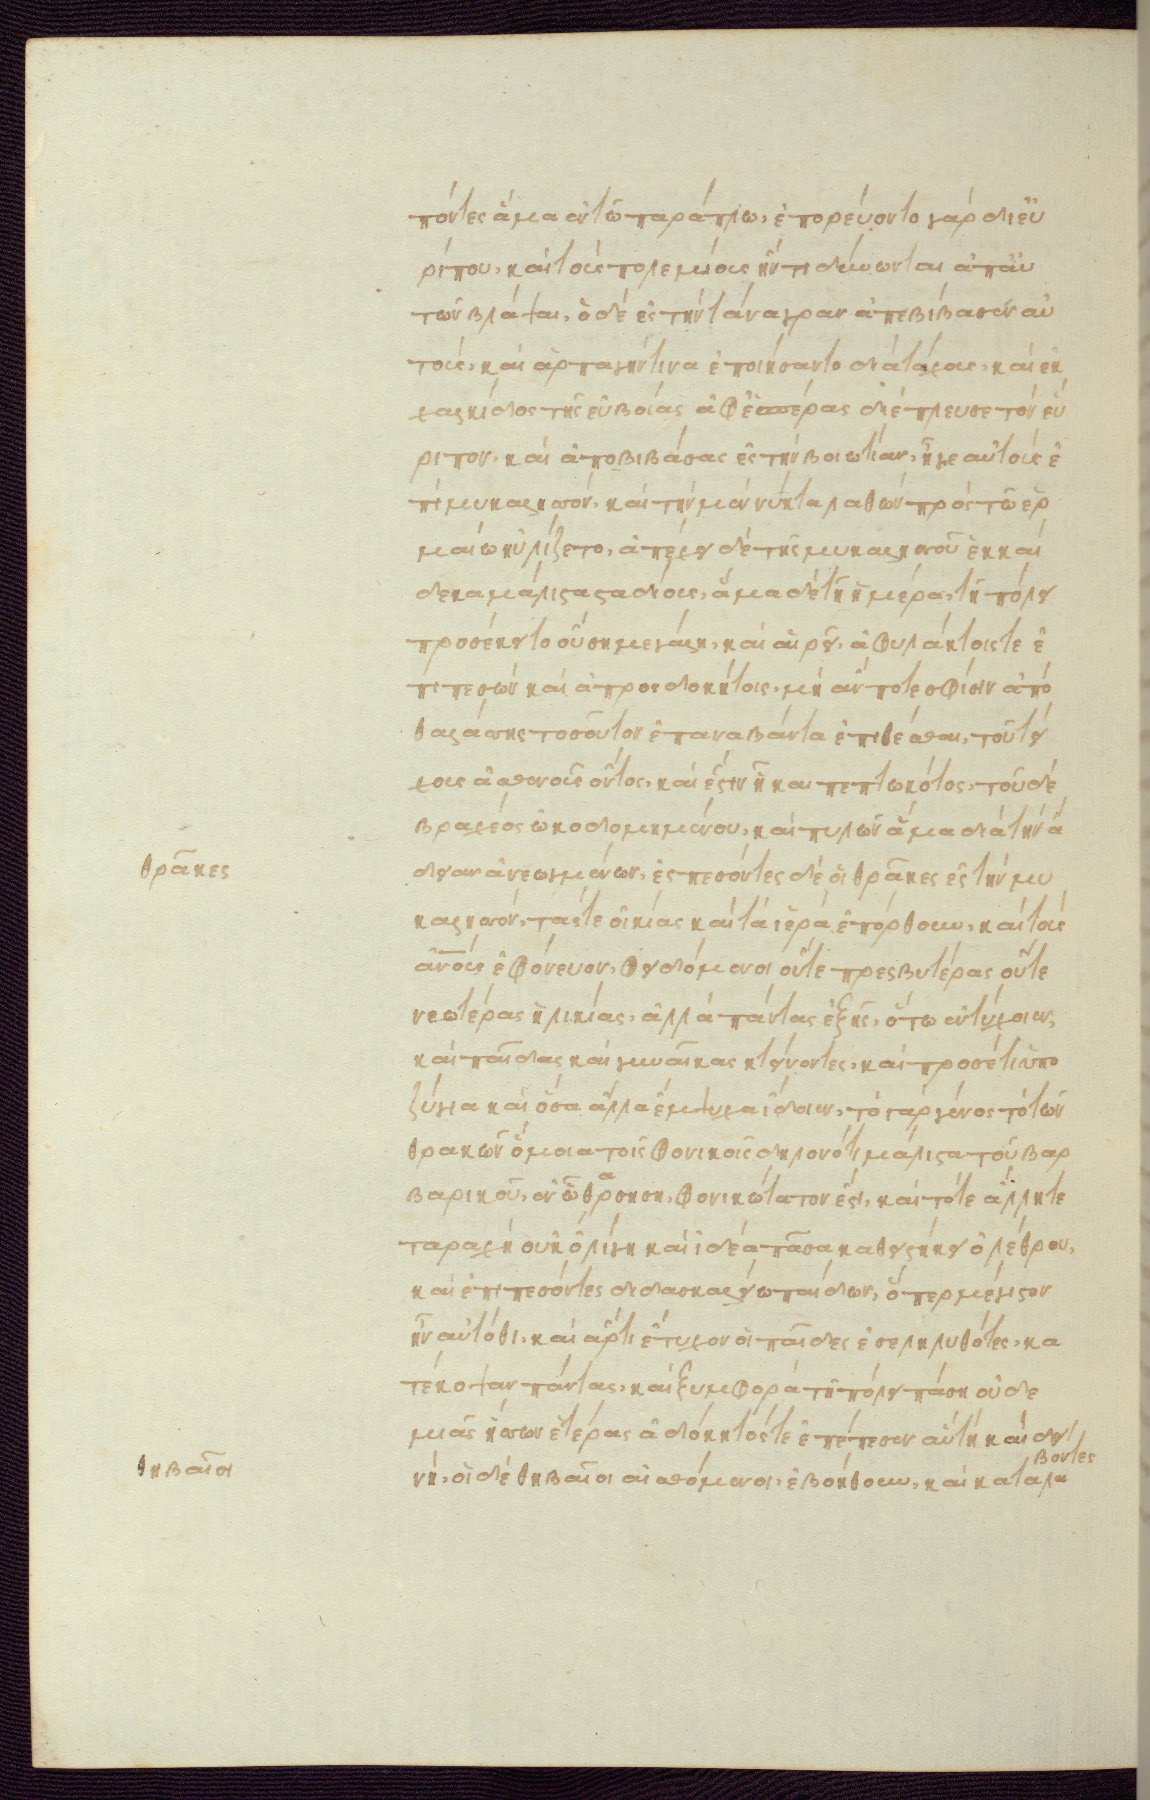 πόντες ἅμα ἐν τῶ παράπλω, ἐπορεύοντο γὰρ δι εὐ
ρίπου, καὶ τοὺς πολεμίους ἤν τι δύνωνται ἀπ αὐ
τῶν βλάψαι, ὁ δὲ ἐς τὴν τάναγραν ἀπεβίβασεν αὐ
τοὺς, καὶ ἁρπαγήν τινα ἐποιήσαντο διατάχους, καὶ ἐκ
χαλκίδος τῆς εὐβοίας ἀφ ἑσπέρας διέπλευσε τὸν εὔ
ριπον, καὶ ἀποβιβάσας ἐς τὴν βοιωτίαν, ἦγε αὐτοὺς ἐ
πὶ μυκαλησσόν, καὶ τὴν μὲν νύκτα λαθὼν πρὸς τῶ ἑρ
μαίω ηὐλίζετο, ἀπέχει δὲ τῆς μυκαλησσοῦ ἑκκαί
δεκα μάλιστα σταδίους, ἅμα δὲ τῆ ἡμέρα, τῆ πόλει
προσέκειτο οὔση μεγάλη, καὶ αἱρεῖ, ἀφυλάκτοις τε ἐ
πιπεσὼν καὶ ἀπροσδοκήτοις, μὴ ἄν ποτε σφίσιν ἀπὸ
θαλάσσης τοσοῦτον ἐπαναβάντα ἐπιθέσθαι, τοῦ τεί
χους ἀσθενοῦς ὄντος, καὶ ἔστιν ἧ και πεπτωκότος, τοῦ δὲ
βραχέος ὠκοδομημένου, καὶ πυλῶν ἅμα διὰ τὴν ἄ
θρᾶκες δειαν ἀνεωγμένων, ἐσπεσόντες δὲ οἱ θρᾶκες ἐς τὴν μυ
καλησσόν, τάς τε οἰκίας καὶ τὰ ἱερὰ ἐπόρθουν, καὶ τοὺς
ἀνους ἐφόνευον, φειδόμενοι οὔτε πρεσβυτέρας οὔτε
νεωτέρας ἡλικίας, ἀλλὰ πάντας ἑξῆς, ὅτω ἐντύχοιεν,
καὶ παῖδας καὶ γυναῖκας κτείνοντες, καὶ προσέτι ὑπο
ζύγια καὶ ὅσα ἄλλα ἔμψυχα ἴδοιεν, τὸ γὰρ γένος τὸ τῶν
θρακῶν ὅμοια τοῖς φονικοῖς δηλονότι μάλιστα τοῦ βαρ
βαρικοῦ, ἐν ὧ θαρσήση, φονικώτατον ἐστι, καὶ τότε ἄλλη τε
ταραχὴ οὐκ ὀλίγη καὶ ἰδέα πᾶσα καθειστήκει ὀλέθρου,
καὶ ἐπιπεσόντες διδασκαλείω παίδων, ὅπερ μέγιστον
ἦν αὐτόθι, καὶ ἄρτι ἔτυχον οἱ παῖδες ἐσεληλυθότες, κα
τέκοψαν πάντας, καὶ ξυμφορὰ τῆ πόλει πάση οὐδε
μιᾶς ἥσσων ἑτέρας ἀδόκητός τε ἐπέπεσεν αὕτη καὶ δει
θηβαῖοι νή, οἱ δὲ θηβαῖοι αἰσθόμενοι, ἐβοήθουν, καὶ καταλα
βοντες